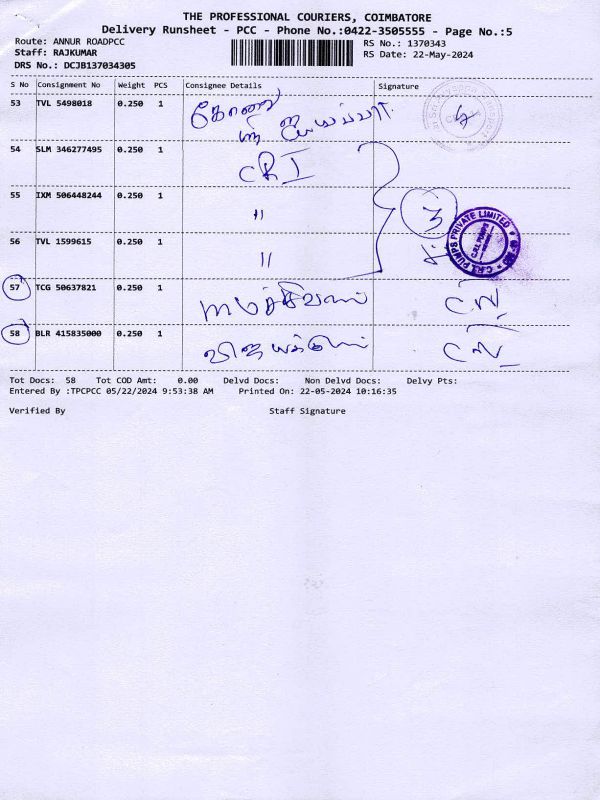 THE PROFESSIONAL COURIERS, COIMBATORE
Delivery Runsheet - PCC - Phone No.:0422-3505555 - Page No.:5
Route: ANNUR ROADPCC
RS No.: 1370343
Staff: RAJKUMAR
RS Date: 22-May-2024
DRS No.: DCJB137034305
S No Consignment No Weight PCS Consignee Details Signature
53 TVL 5498018 0.250 1
54 SLM 346277495 0.250 1 CRI
55 IXM 506448244 0.250 1 "
3
56 TVL 1599615 0.250 1 "
C.R.I. PUMPS PRIVATE LIMITED
57 TCG 50637821 0.250 1
58 BLR 415835000 0.250 1
Tot Docs: 58 Tot COD Amt: 0.00 Delvd Docs: Non Delvd Docs: Delvy Pts:
Entered By :TPCPCC 05/22/2024 9:53:38 AM Printed On: 22-05-2024 10:16:35
Verified By Staff Signature